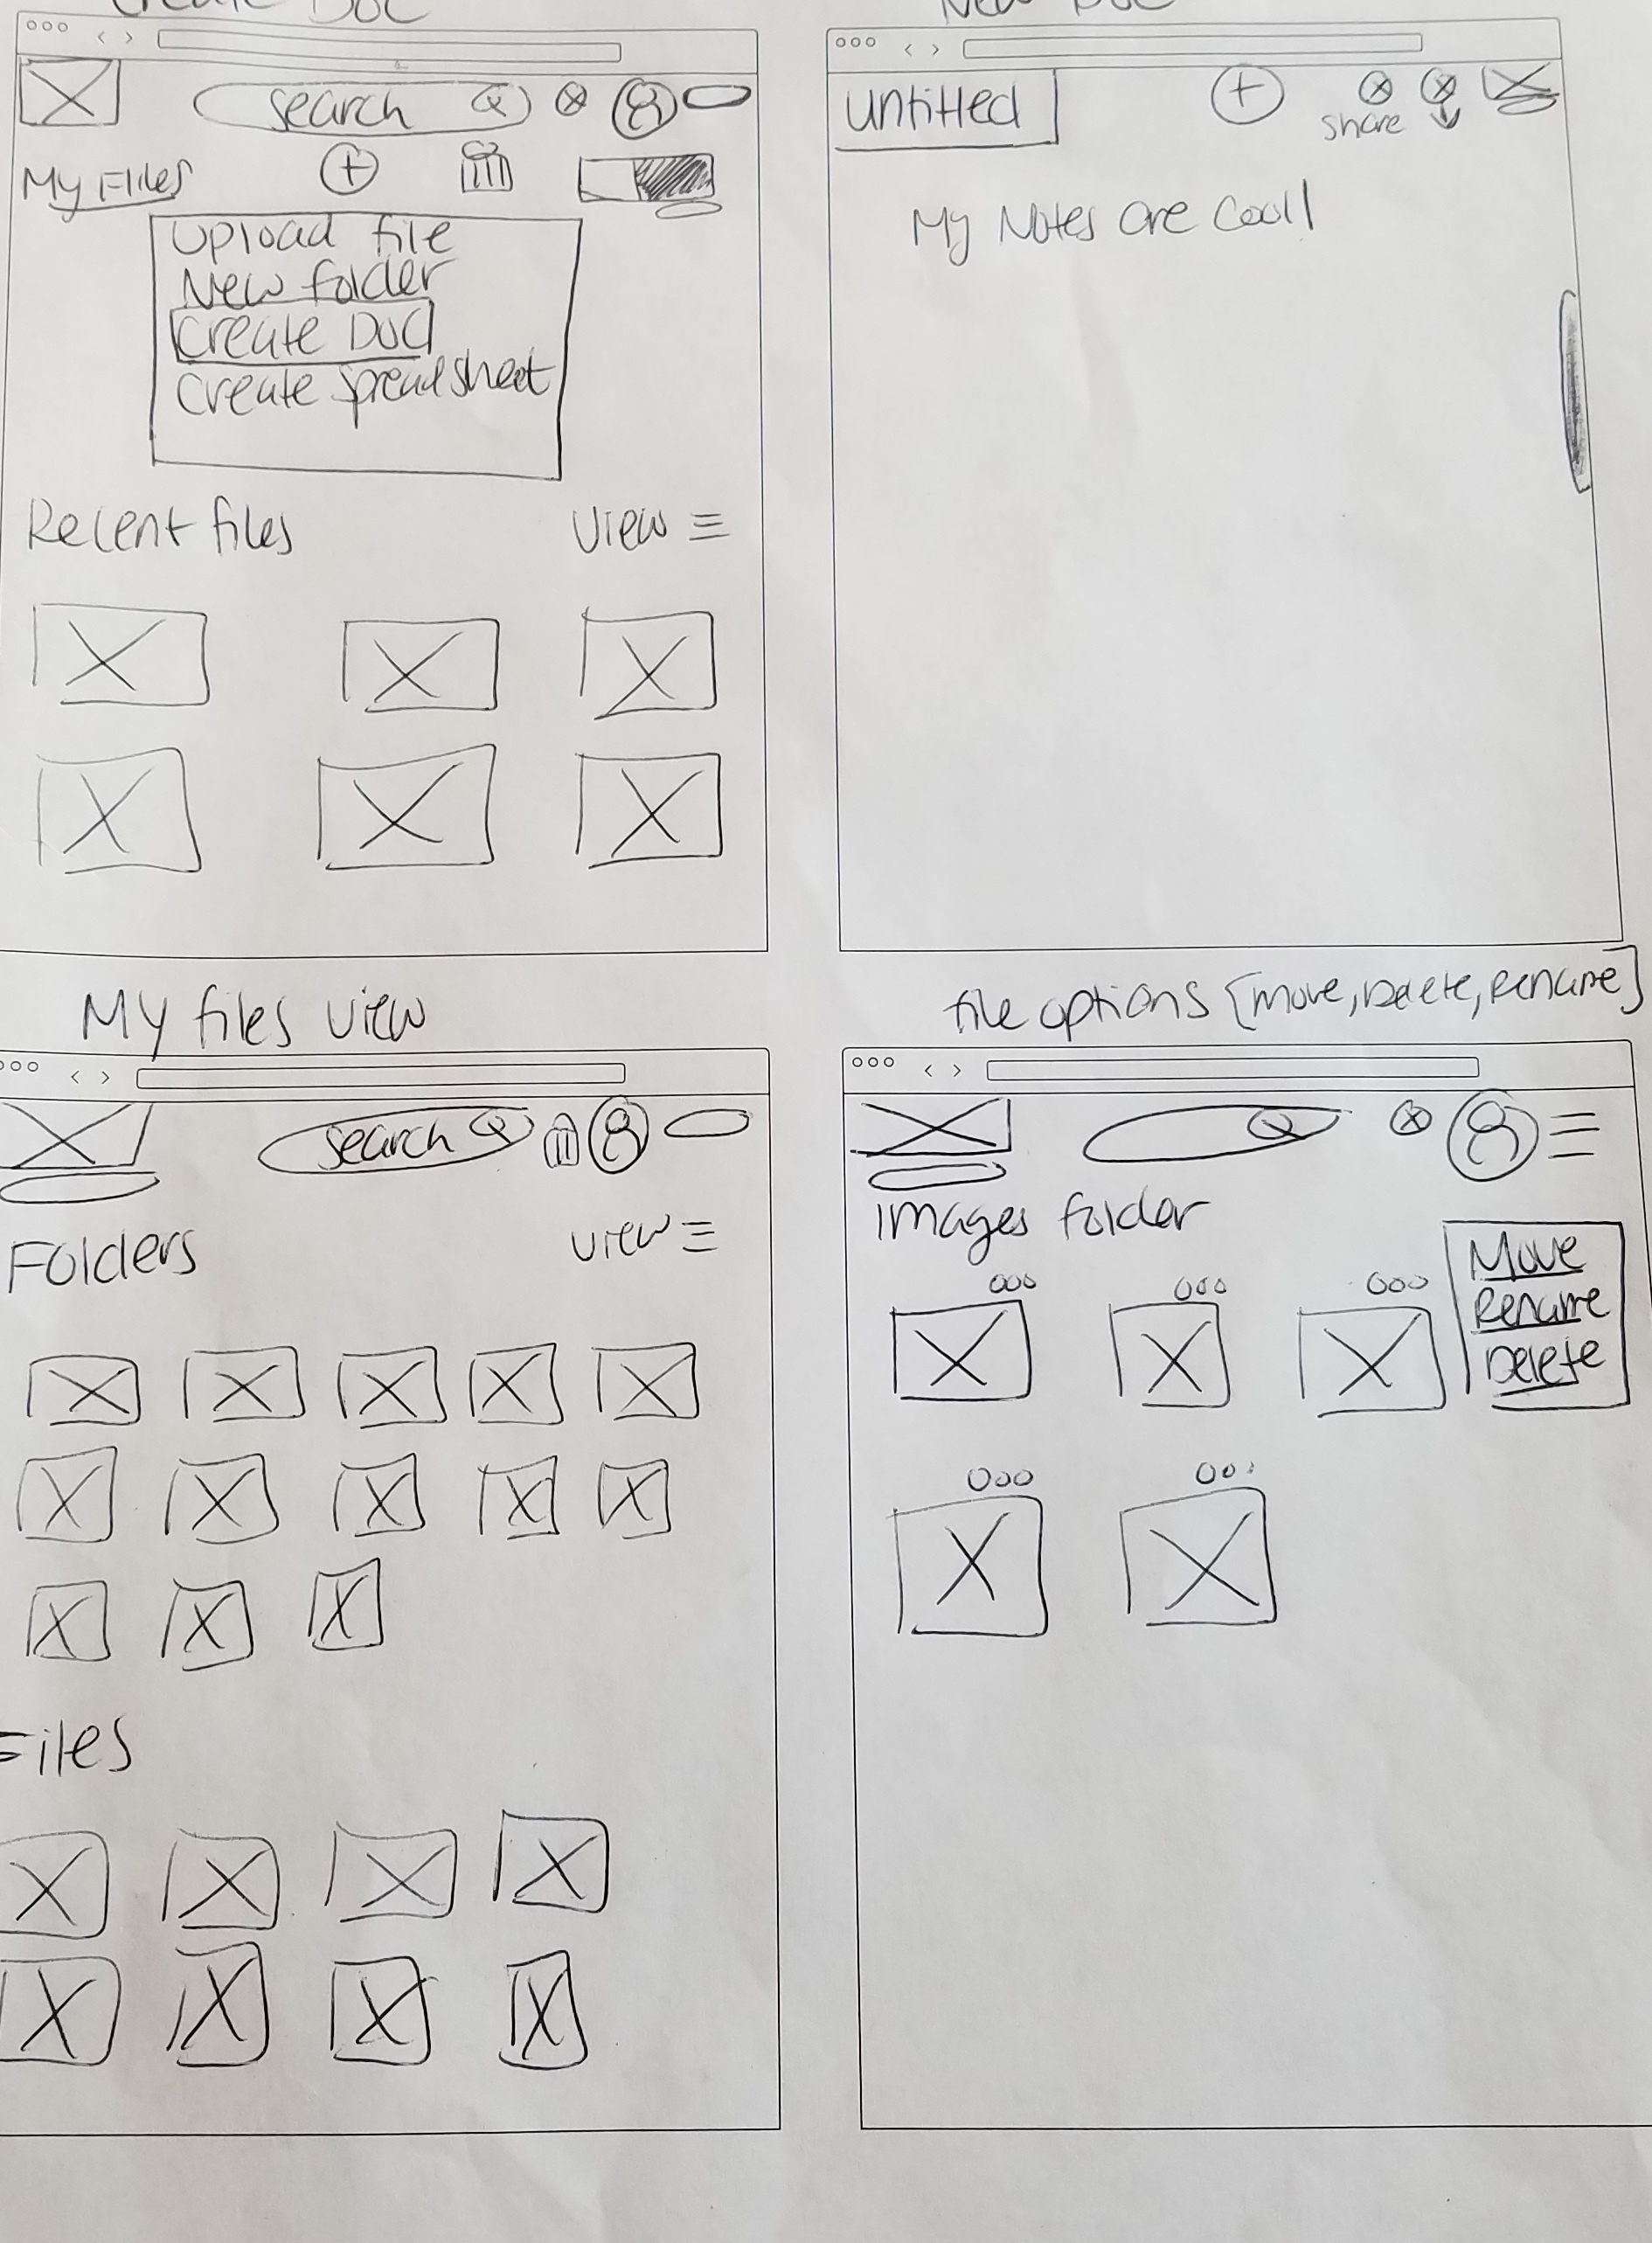 Create Doc
New Doc
search
My Files
Upload file
New folder
Create Doc
Create spreadsheet
Recent files
View
untitled
share
My Notes are Cool!
My files view
search
Folders
view
Files
file options [move, Delete, Rename]
Images folder
Move
Rename
Delete